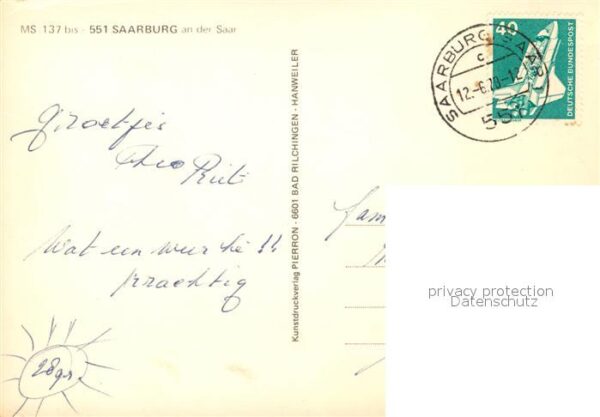 MS 137 bis - 551 SAARBURG an der Saar
Groetjes
Theo Riet
Wat een weer hè !!
prachtig
28gr.
Kunstdruckverlag PIERRON - 6601 BAD RILCHINGEN - HANWEILER
SAARBURG SAAR 1
c
12.-6.78-12
551
40
DEUTSCHE BUNDESPOST
Fam
privacy protection
Datenschutz